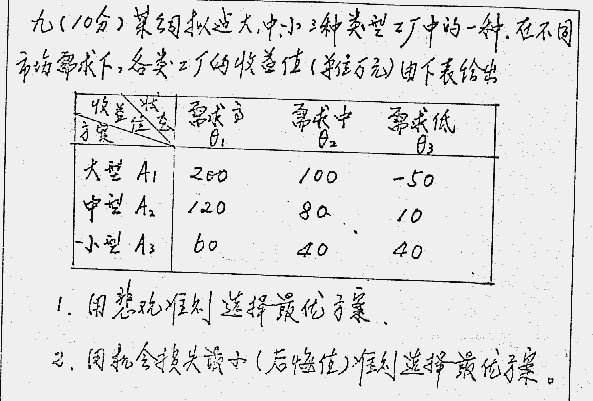 九(10分)某公司拟建大、中、小3种类型工厂中的一种.在不同
市场需求下,各类工厂的收益值(单位万元)由下表给出
收益值 状态 方案 需求高 θ₁ 需求中 θ₂ 需求低 θ₃
大型 A₁ 200 100 -50
中型 A₂ 120 80 10
小型 A₃ 60 40 40
1. 用悲观准则选择最优方案.
2. 用机会损失最小(后悔值)准则选择最优方案。